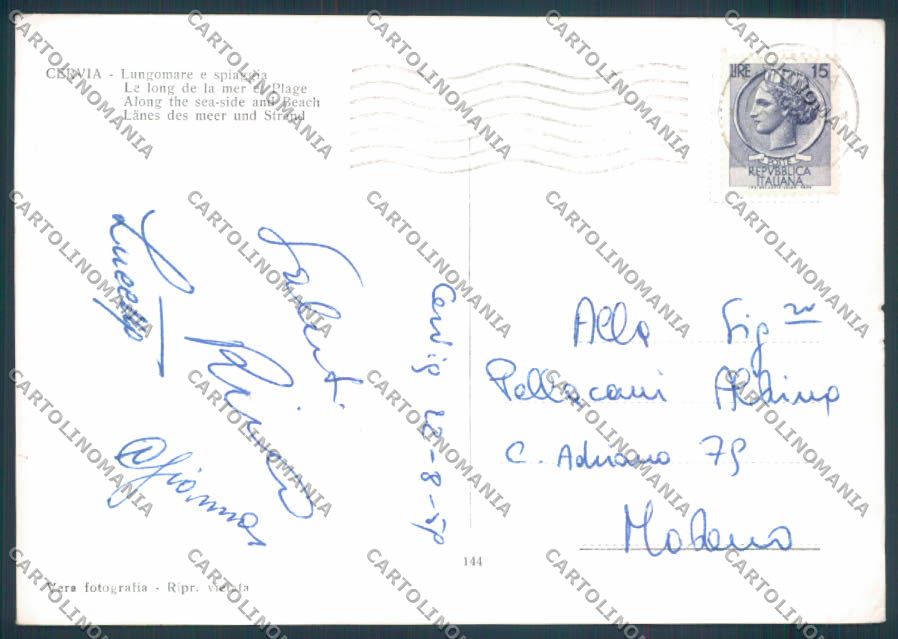 CERVIA - Lungomare e spiaggia
Le long de la mer et Plage
Along the sea-side and Beach
Länes des meer und Strand
LIRE 15
POSTE
REPVBBLICA
ITALIANA
Saluti
Cervia 22-8-
Alla Sig.ra
Pellacani Albina
C. Adriano 75
Modena
144
Vera fotografia - Ripr. vietata
CARTOLINOMANIA